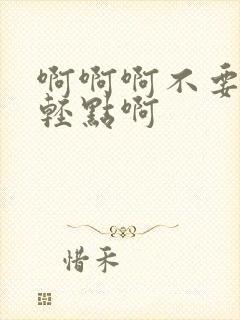 啊啊啊不要
輕點啊
惜禾